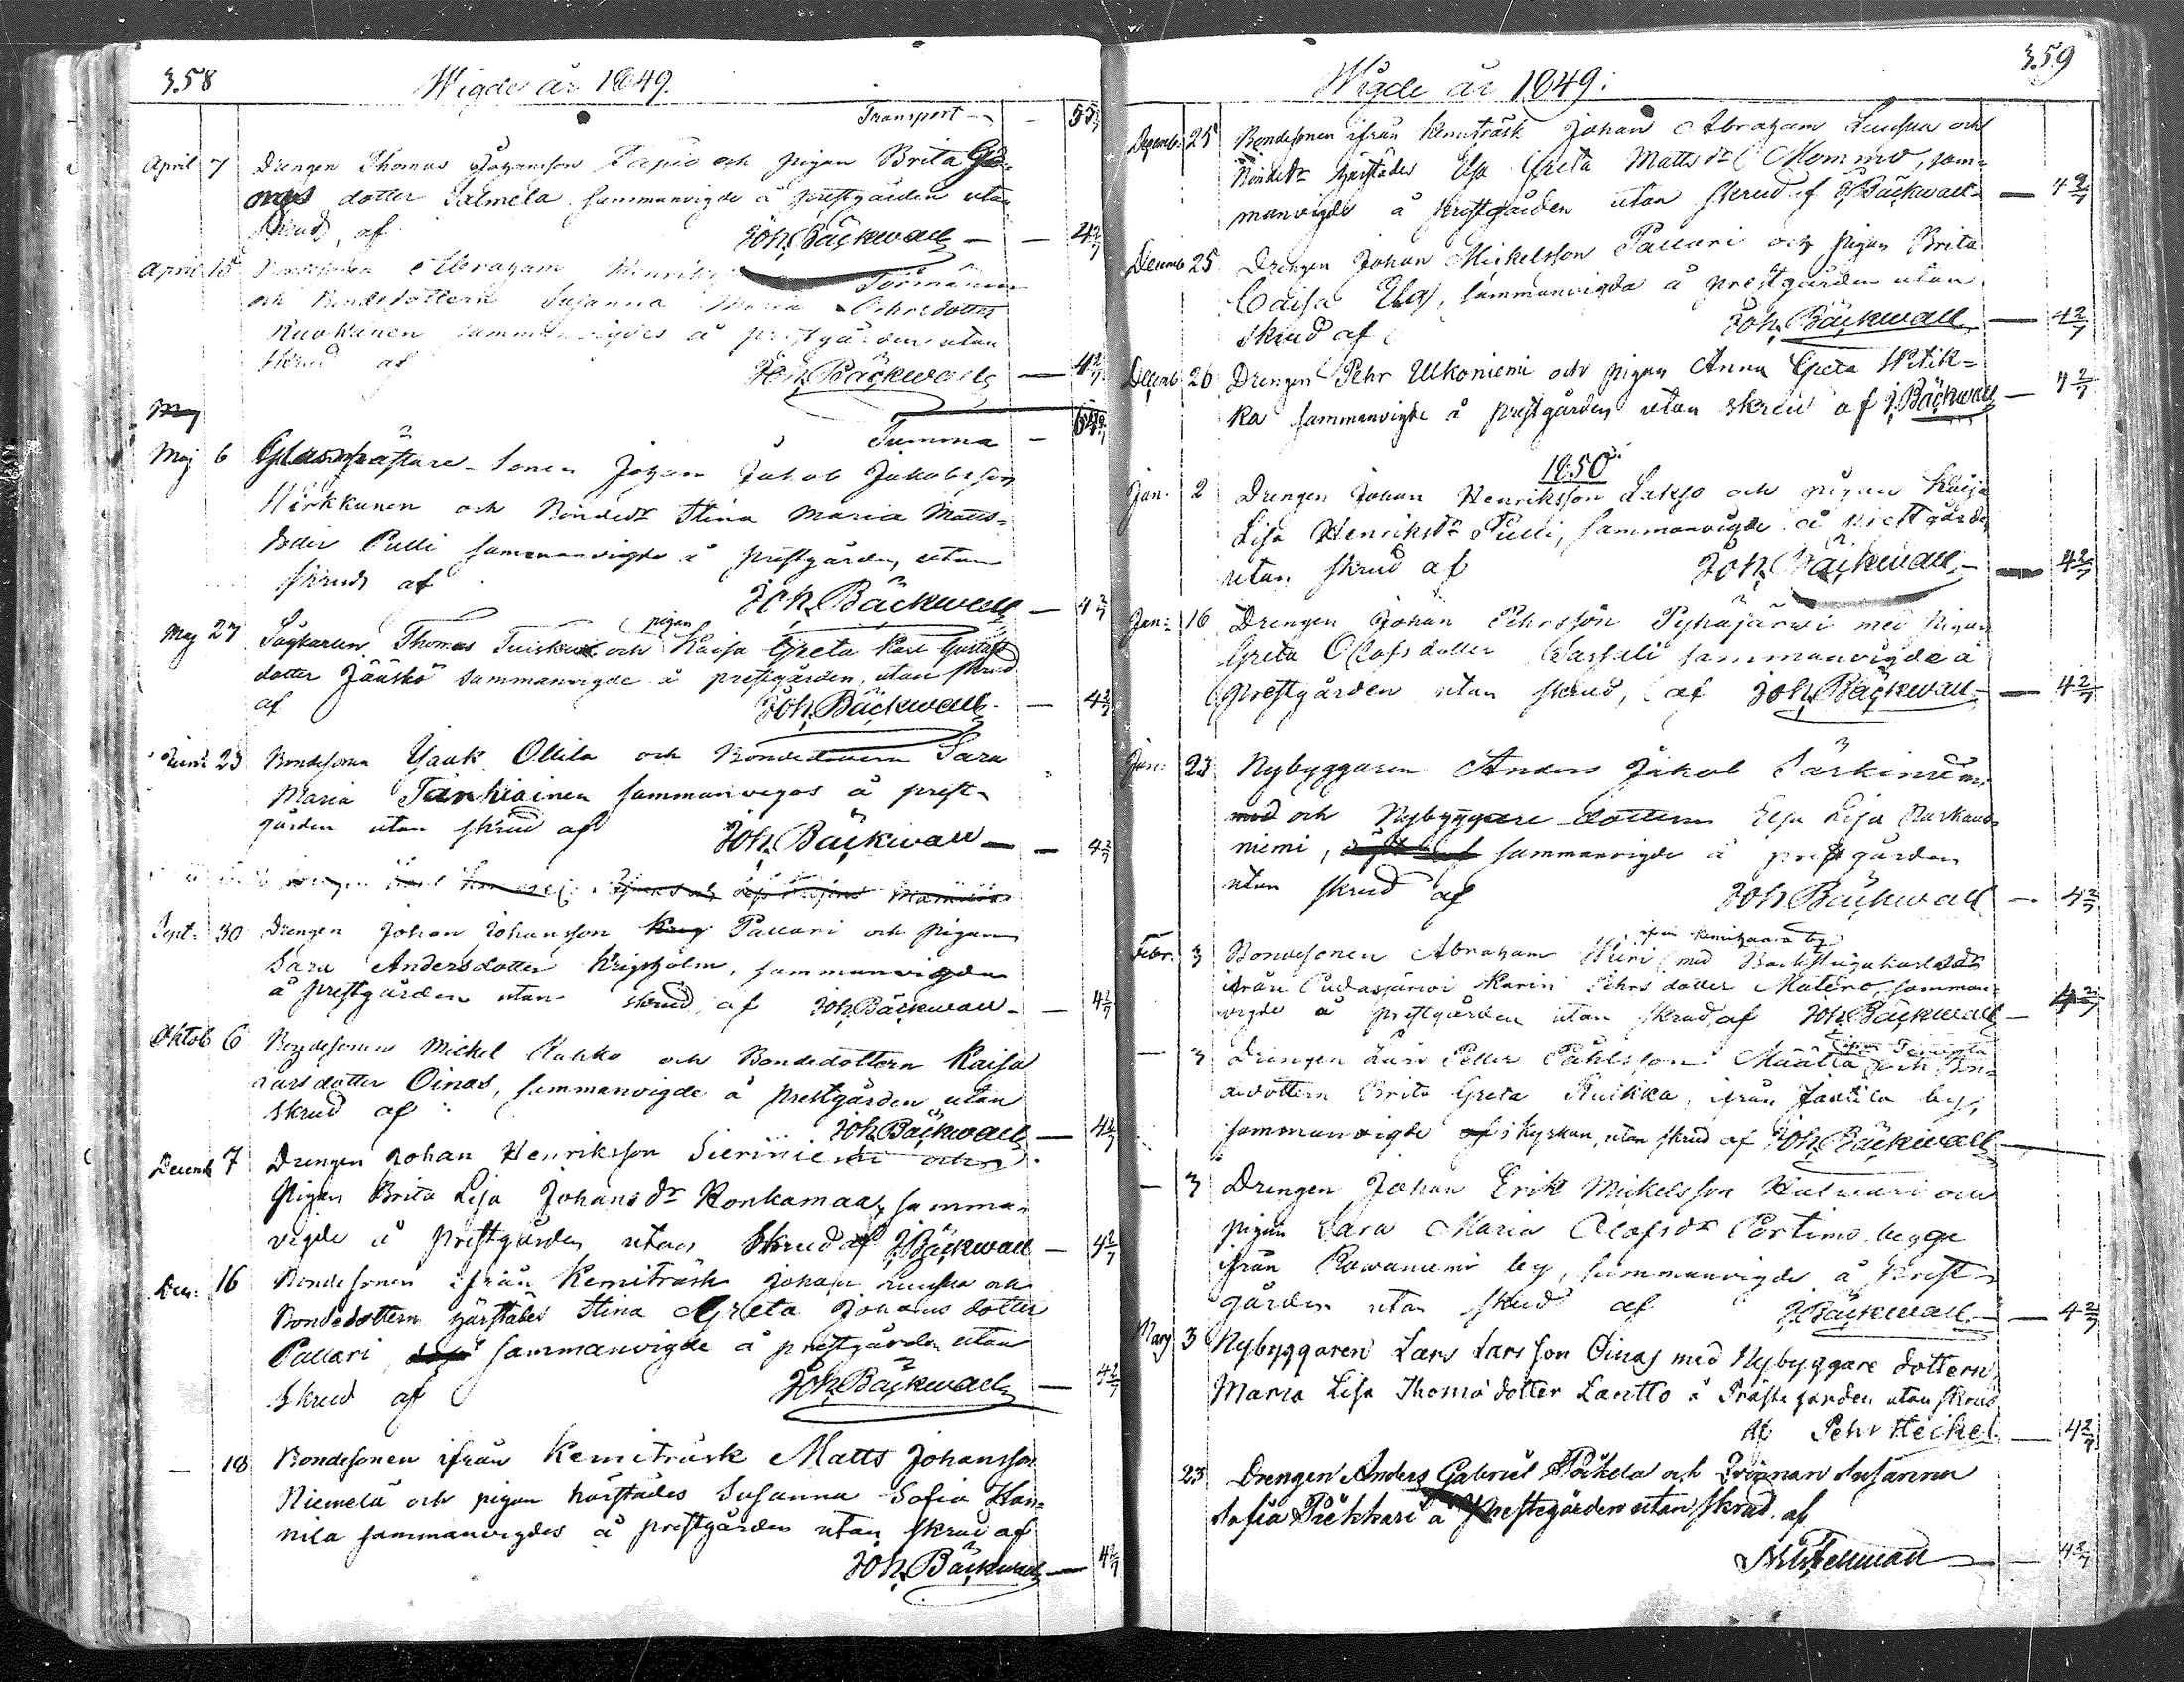 358
Wigde år 1849.
Transport — — 55
April 7 Drengen Thomas Johansson Tapio och pigan Brita
dotter Salmela sammanvigde å prestgården utan
skrud, af Joh. Bäckwall — — 4 2/7
April 15 Bondesonen Abraham Törmänen
och Bondedottern Susanna Maria Pehrsdotter
Ruokanen sammanvigdes å prestgården utan
skrud af Joh. Bäckwall — 4 2/7
Maj
Summa —
Maj 6 sonen Johan Jakob Jakobsson
Hirkkanen och Bondedr Stina Maria Matts=
dotter Pulli sammanvigde å prestgården, utan
skrud af Joh. Bäckwall — 4 2/7
pigan
Maj 27 Thomas och Kaisa Greta Karl Gustafs
dotter Jääskö sammanvigde å prestgården, utan skrud
af Joh. Bäckwall — 4 2/7
Juni 23 Bondesonen Isaak Ollila och Bondedottern Sara
Maria Tanhiainen sammanvigas å prest-
gården utan skrud af Joh. Bäckwall — — 4 2/7
Sept. 30 Drengen Johan Johansson Pallari och pigan
Sara Andersdotter Krigsholm, sammanvigde
å prestgården utan skrud af Joh. Bäckwall — — 4 2/7
Oktob 6 Bondesonen Mickel och Bondedottern Kaisa
Larsdotter Oinas, sammanvigde å prestgården utan
skrud af Joh. Bäckwall — 4 2/7
Decemb 7 Drengen Johan Henriksson Sieriniemi och
Pigan Brita Lisa Johansdr Konkamaa, samman
vigde å prestgården utan skrud af J. Bäckwall — 4 2/7
Dec: 16 Bondesonen ifrån Kemiträsk Johan Luusua och
Bondedottern härstädes Stina Greta Johans dotter
Pallari sammanvigde å prestgården utan
skrud af Joh. Bäckwall — 4 2/7
— 18 Bondesonen ifrån Kemiträsk Matts Johansson
Niemelä och pigan härstädes Susanna Sofia Kan=
nila sammanvigdes å prestgården utan skrud af
Joh. Bäckwall — 4 2/7
359
Wigde år 1849.
Decemb. 25 Bondesonen ifrån Kemiträsk Johan Abraham Luusua och
Bondedr härstädes Elsa Greta Mattsdr Mommo, sam=
manvigde å prestgården utan skrud af J. Bäckwall — 4 2/7
Decemb 25 Drengen Johan Mickelsson Pallari och pigan Brita
Caisa, sammanvigda å prestgården utan
skrud af Joh. Bäckwall — 4 2/7
Decemb 26 Drengen Pehr Ulkoniemi och pigan Anna Greta Witik=
ka sammanvigde å prestgården utan skrud af J. Bäckwall — 4 2/7
1850.
Jan. 2 Drengen Johan Henriksson Lakso och pigan Kaisa
Lisa Henriksdr Pulli, sammanvigde å prestgården
utan skrud af Joh. Bäckwall — — 4 2/7
Jan: 16 Drengen Johan Pehrsson Pyhäjärwi med pigan
Greta Olofsdotter sammanvigde å
prestgården utan skrud, af Joh. Bäckwall — — 4 2/7
Jan: 23 Nybyggaren Anders Jakob Särkiniemi
med och Nybyggare dottern Elsa Lisa
niemi, sammanvigde å prestgården
utan skrud af Joh Bäckwall — 4 2/7
ifrån Kemihaara by
Febr. 3 Bondesonen Abraham med
ifrån Pudasjärwi Karin Pehrs dotter Matero, samman=
vigde å prestgården utan skrud af Joh. Bäckwall — 4 2/7
— 3 Drengen Lars Petter Påhlsson Määttä och Bon=
dedottern Brita Greta Kuikka, ifrån by,
sammanvigde i kyrkan, utan skrud af Joh. Bäckwall —
— 3 Drengen Johan Erik Mickelsson Halwari och
pigan Sara Maria Olofsdr Portimo, begge
ifrån Rowaniemi by, sammanvigde å prest=
gården utan skrud af J. Bäckwall — — 4 2/7
Mars 3 Nybyggaren Lars Larsson Oinas med Nybyggare dottern
Maria Lisa Thomædotter Lantto å Prästegården utan skrud
af Pehr Heickel — 4 2/7
23 Drengen Anders Gabriel Pöckelä och Susanna
Sofia Piekkari å Prestegården utan skrud af
Fellman — — 4 2/7